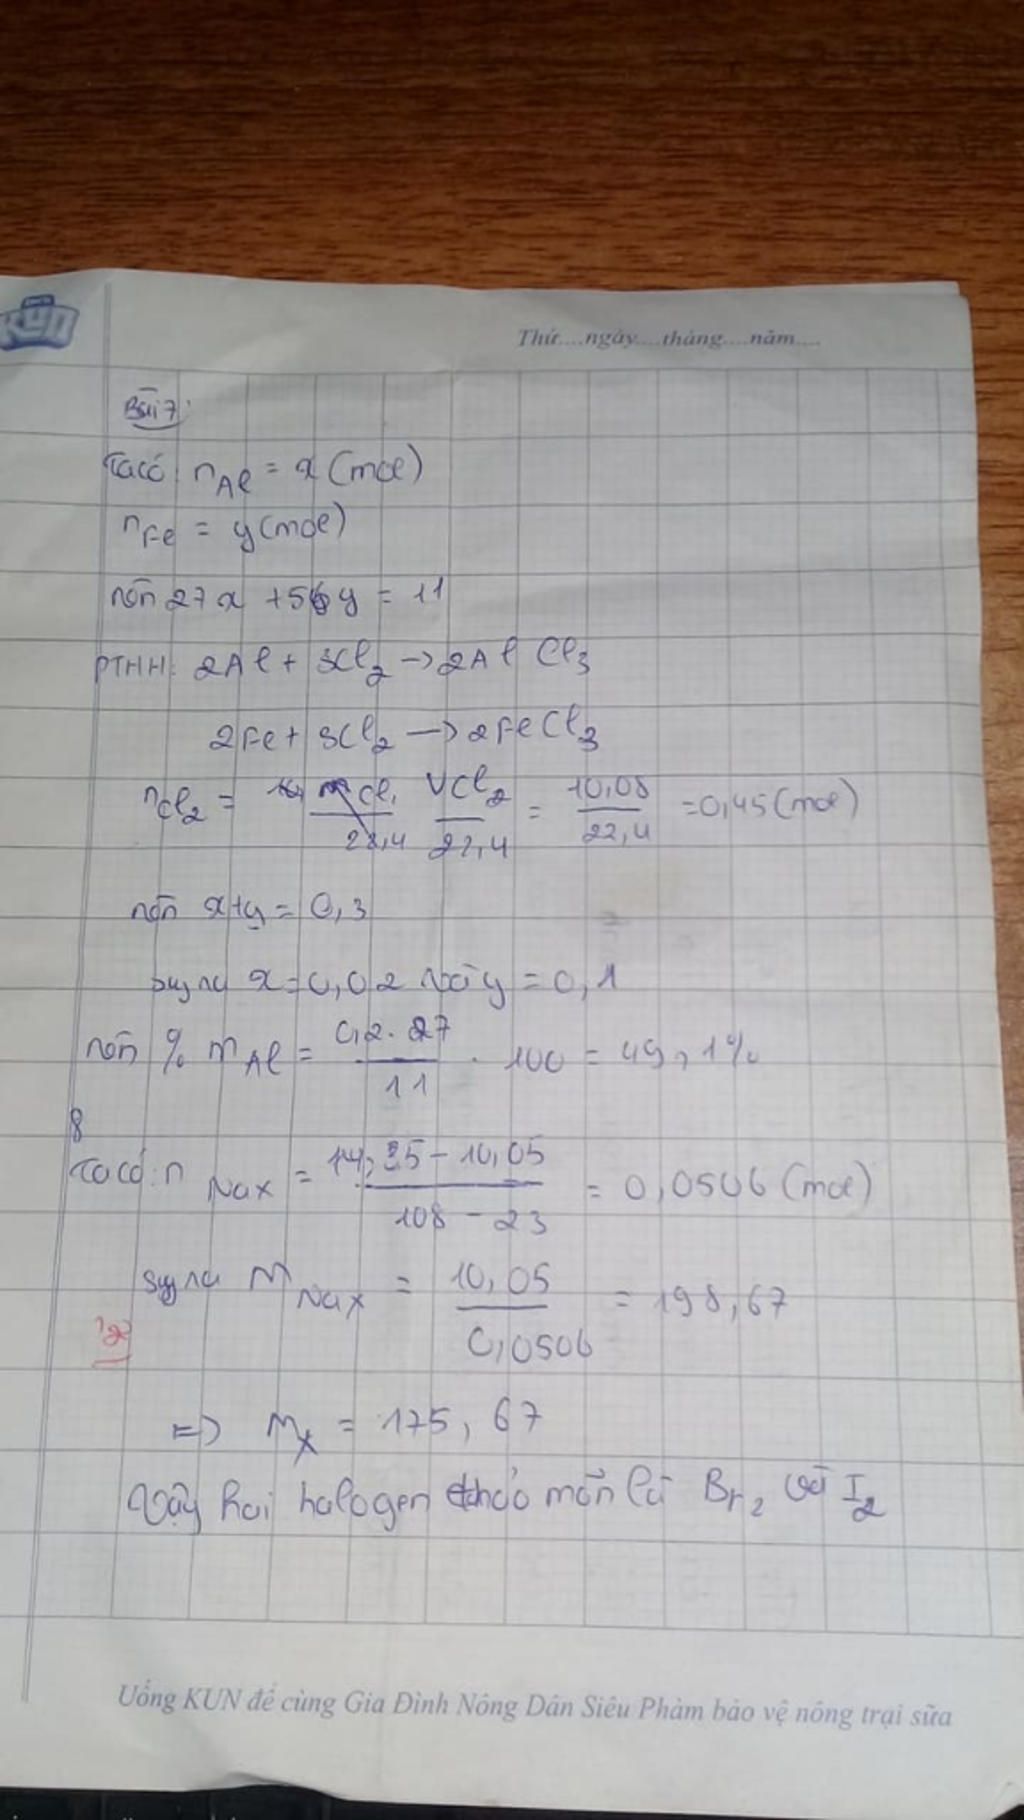 KUN
Thứ....ngày....tháng....năm....
Bài 7:
Ta có: nAl = x (mol)
nFe = y (mol)
nên 27x + 56y = 11
PTHH: 2Al + 3Cl2 -> 2AlCl3
2Fe + 3Cl2 -> 2FeCl3
nCl2 = VCl2/22,4 = 10,08/22,4 = 0,45 (mol)
nên x+y = 0,3
suy ra x = 0,02 và y = 0,1
nên % mAl = 0,2.27/11 . 100 = 49,1%
8
Ta có: n NaX = 14,35 - 10,05/108 - 23 = 0,0506 (mol)
suy ra M NaX = 10,05/0,0506 = 198,67
=> MX = 175,67
Vậy hai halogen thỏa mãn là Br2 và I2
Uống KUN để cùng Gia Đình Nông Dân Siêu Phàm bảo vệ nông trại sữa